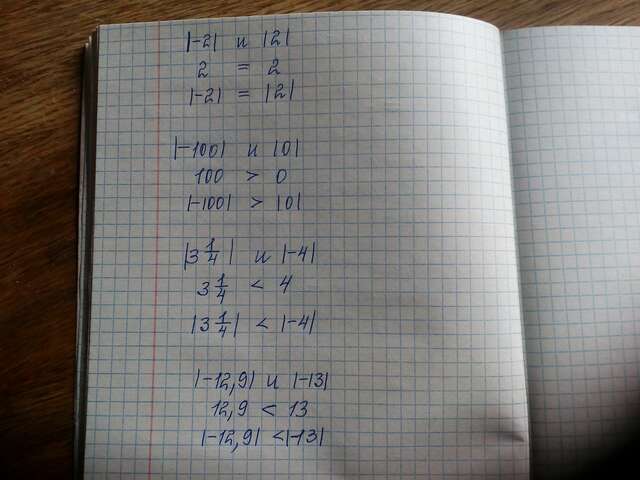 |-2| и |2|
2 = 2
|-2| = |2|
|-100| и |0|
100 > 0
|-100| > |0|
|3 1/4| и |-4|
3 1/4 < 4
|3 1/4| < |-4|
|-12,9| и |-13|
12,9 < 13
|-12,9| < |-13|